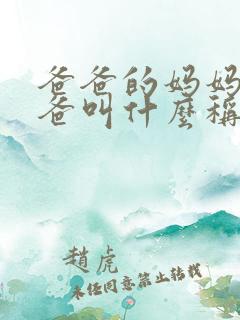 爸爸的妈妈
爸叫什麼稱
趙虎
未任同意禁止转载